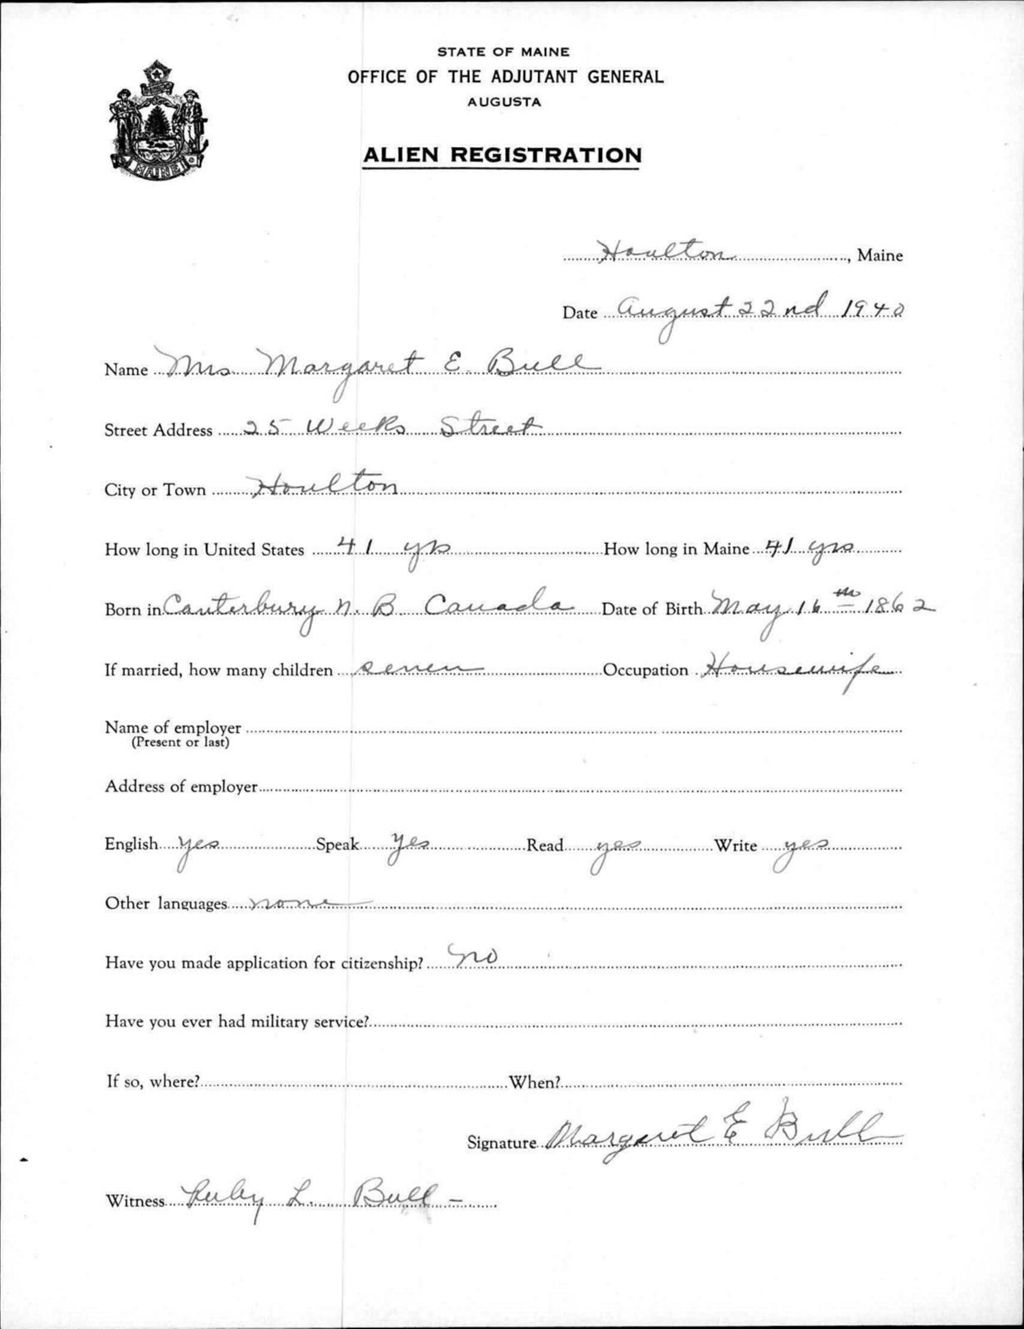 STATE OF MAINE
OFFICE OF THE ADJUTANT GENERAL
AUGUSTA
ALIEN REGISTRATION
MAINE
Houlton, Maine
Date August 22nd 1940
Name Mrs Margaret E. Bull
Street Address 25 Weeks Street
City or Town Houlton
How long in United States 41 yrs How long in Maine 41 yrs
Born in Canterbury N. B. Canada Date of Birth May 16th 1862
If married, how many children seven Occupation Housewife
Name of employer
(Present or last)
Address of employer
English yes Speak yes Read yes Write yes
Other languages none
Have you made application for citizenship? no
Have you ever had military service?
If so, where? When?
Signature Margaret E Bull
Witness Ruby L. Bull